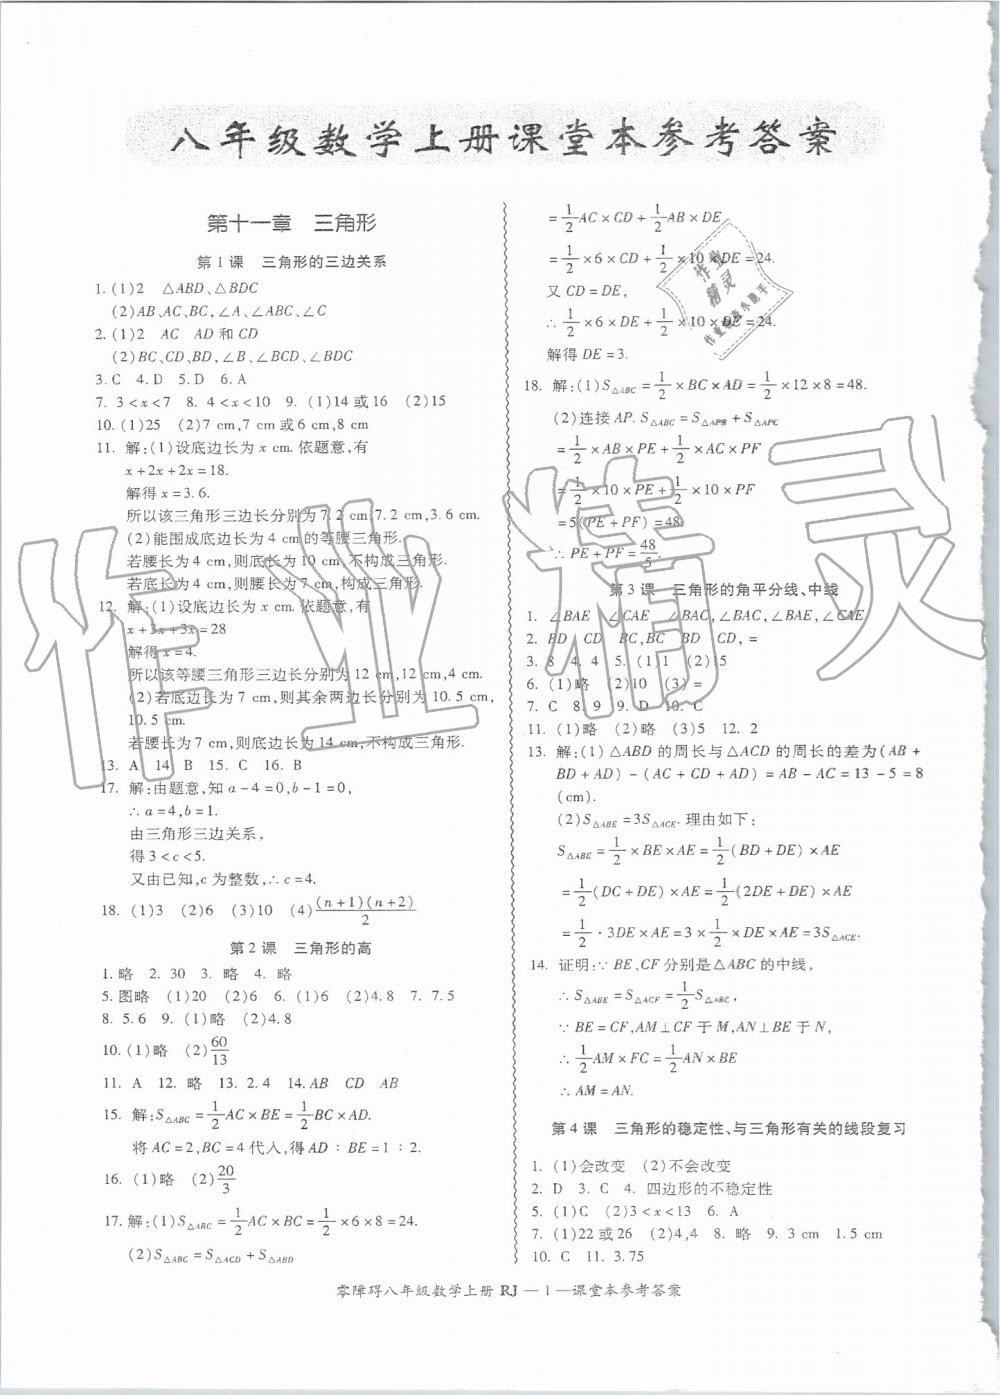 八年级数学上册课堂本参考答案
第十一章 三角形
第1课 三角形的三边关系
1. (1)2 △ABD、△BDC
(2)AB,AC,BC,∠A、∠ABC、∠C
2. (1)2 AC AD 和 CD
(2)BC,CD,BD,∠B、∠BCD、∠BDC
3. C 4. D 5. D 6. A
7. 3<x<7 8. 4<x<10 9. (1)14 或 16 (2)15
10. (1)25 (2)7 cm,7 cm 或 6 cm,8 cm
11. 解:(1)设底边长为 x cm. 依题意,有
x+2x+2x=18.
解得 x=3.6.
所以该三角形三边长分别为 7.2 cm,7.2 cm,3.6 cm.
(2)能围成底边长为 4 cm 的等腰三角形.
若腰长为 4 cm,则底长为 10 cm,不构成三角形.
若底长为 4 cm,则腰长为 7 cm,构成三角形.
12. 解:(1)设底边长为 x cm. 依题意,有
x+3x+3x=28
解得 x=4.
所以该等腰三角形三边长分别为 12 cm,12 cm,4 cm
(2)若底边长为 7 cm,则其余两边长分别为 10.5 cm,
10.5 cm.
若腰长为 7 cm,则底边长为 14 cm,不构成三角形.
13. A 14. B 15. C 16. B
17. 解:由题意,知 a-4=0,b-1=0,
∴a=4,b=1.
由三角形三边关系,
得 3<c<5.
又由已知,c 为整数,∴c=4.
18. (1)3 (2)6 (3)10 (4)(n+1)(n+2)/2
第2课 三角形的高
1. 略 2. 30 3. 略 4. 略
5. 图略 (1)20 (2)6 6. (1)6 (2)4.8 7. 7.5
8. 5.6 9. (1)略 (2)4.8
10. (1)略 (2)60/13
11. A 12. 略 13. 2.4 14. AB CD AB
15. 解:S△ABC=1/2AC×BE=1/2BC×AD.
将 AC=2,BC=4 代入,得 AD∶BE=1∶2.
16. (1)略 (2)20/3
17. 解:(1)S△ABC=1/2AC×BC=1/2×6×8=24.
(2)S△ABC=S△ACD+S△ABD
=1/2AC×CD+1/2AB×DE
=1/2×6×CD+1/2×10×DE=24.
又 CD=DE,
∴1/2×6×DE+1/2×10×DE=24.
解得 DE=3.
18. 解:(1)S△ABC=1/2×BC×AD=1/2×12×8=48.
(2)连接 AP. S△ABC=S△APB+S△APC
=1/2×AB×PE+1/2×AC×PF
=1/2×10×PE+1/2×10×PF
=5(PE+PF)=48
∴PE+PF=48/5.
第3课 三角形的角平分线、中线
1. ∠BAE ∠CAE ∠BAC,∠BAC,∠BAE,∠CAE
2. BD CD BC,BC BD CD,=
3. 8 4. 4 5. (1)1 (2)15
6. (1)略 (2)10 (3)=
7. C 8. 9 9. D 10. C
11. (1)略 (2)略 (3)5 12. 2
13. 解:(1)△ABD 的周长与△ACD 的周长的差为(AB+
BD+AD)-(AC+CD+AD)=AB-AC=13-5=8
(cm).
(2)S△ABE=3S△ACE. 理由如下:
S△ABE=1/2×BE×AE=1/2(BD+DE)×AE
=1/2(DC+DE)×AE=1/2(2DE+DE)×AE
=1/2·3DE×AE=3×1/2×DE×AE=3S△ACE.
14. 证明:∵BE、CF 分别是△ABC 的中线,
∴S△ABE=S△ACF=1/2S△ABC,
∵BE=CF,AM⊥CF 于 M,AN⊥BE 于 N,
∴1/2AM×FC=1/2AN×BE
∴AM=AN.
第4课 三角形的稳定性、与三角形有关的线段复习
1. (1)会改变 (2)不会改变
2. D 3. C 4. 四边形的不稳定性
5. (1)C (2)3<x<13 6. A
7. (1)22 或 26 (2)4,4 8. 略 9. 1.5cm
10. C 11. 3.75
零障碍八年级数学上册 RJ — 1 —课堂本参考答案
作业精灵
作业
精灵